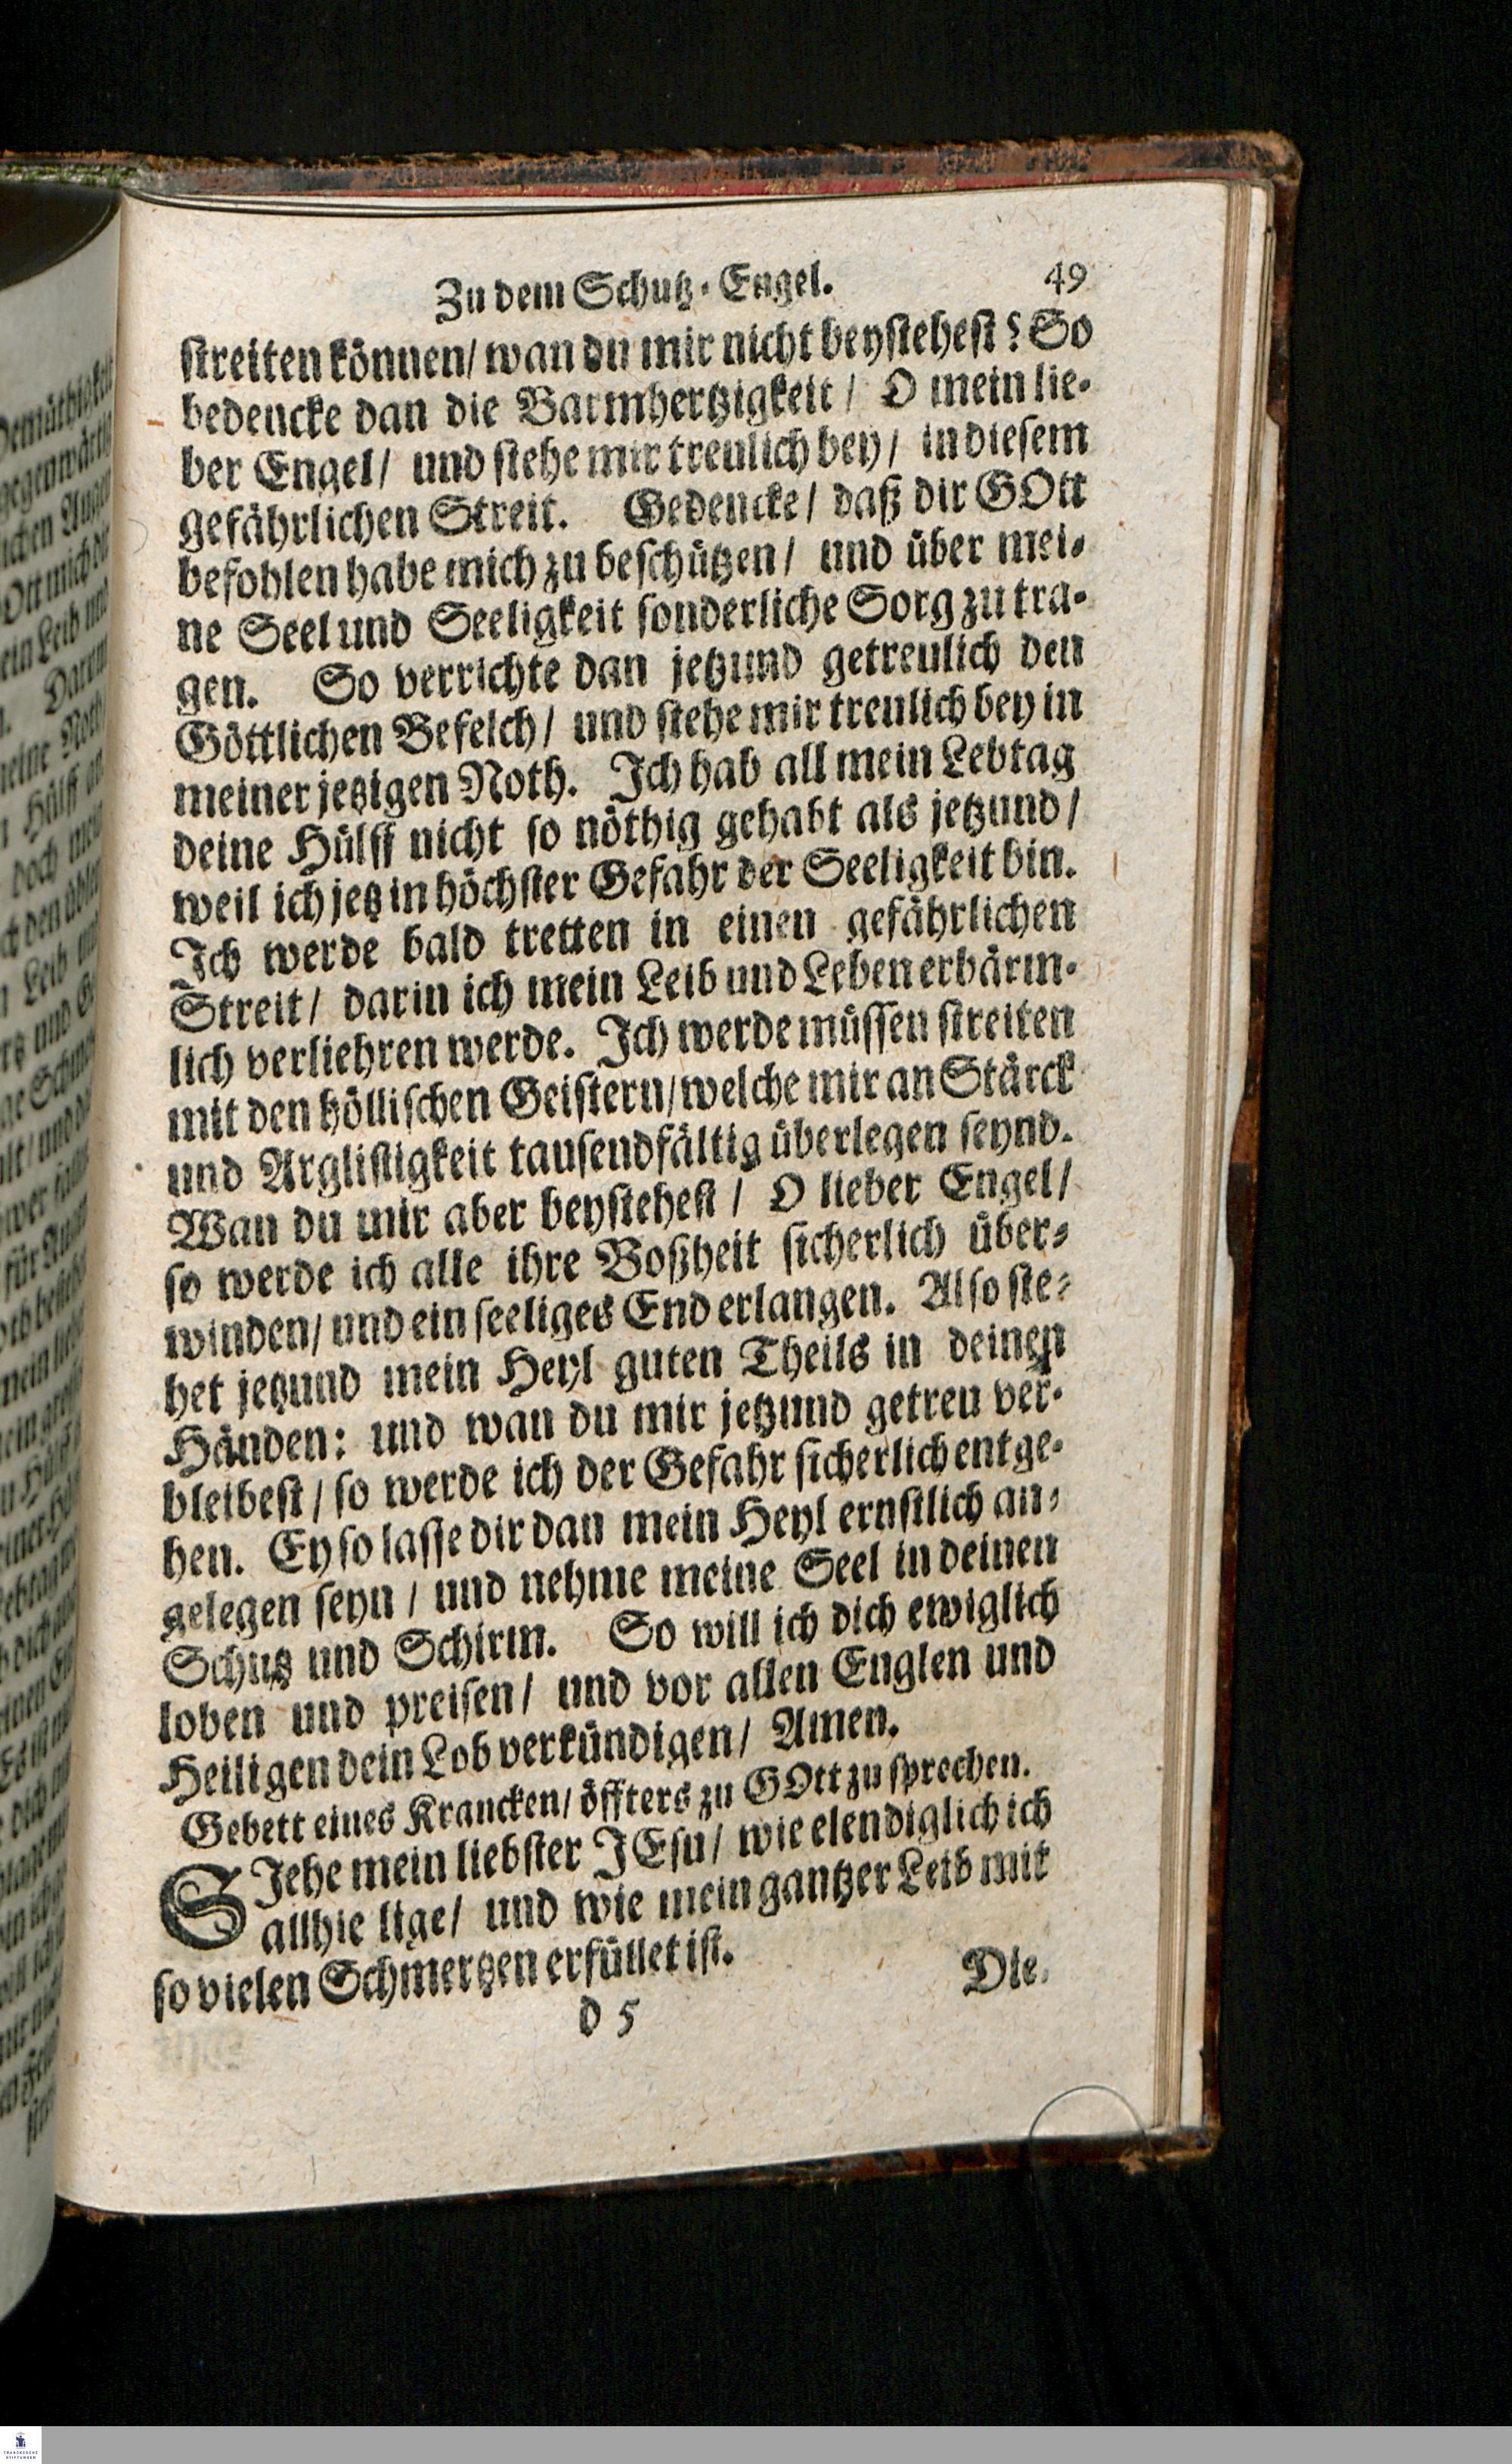 Zu dem Schutz-Engel. 49
streiten können/ wan du mir nicht beystehest? So
bedencke dan die Barmhertzigkeit/ O mein lie-
ber Engel/ und stehe mir treulich bey/ in diesem
gefährlichen Streit. Gedencke/ daß dir GOtt
befohlen habe mich zu beschützen/ und über mei-
ne Seel und Seeligkeit sonderliche Sorg zu tra-
gen. So verrichte dan jetzund getreulich den
Göttlichen Befelch/ und stehe mir treulich bey in
meiner jetzigen Noth. Ich hab all mein Lebtag
deine Hülff nicht so nöthig gehabt als jetzund/
weil ich jetz in höchster Gefahr der Seeligkeit bin.
Ich werde bald tretten in einen gefährlichen
Streit/ darin ich mein Leib und Leben erbärm-
lich verliehren werde. Ich werde müssen streiten
mit den höllischen Geistern/ welche mir an Stärck
und Arglistigkeit tausendfältig überlegen seynd.
Wan du mir aber beystehest/ O lieber Engel/
so werde ich alle ihre Boßheit sicherlich über-
winden/ und ein seeliges End erlangen. Also ste-
het jetzund mein Heyl guten Theils in deinen
Händen: und wan du mir jetzund getreu ver-
bleibest/ so werde ich der Gefahr sicherlich entge-
hen. Ey so lasse dir dan mein Heyl ernstlich an-
gelegen seyn/ und nehme meine Seel in deinen
Schutz und Schirm. So will ich dich ewiglich
loben und preisen/ und vor allen Englen und
Heiligen dein Lob verkündigen/ Amen.
Gebett eines Krancken/ öffters zu GOtt zu sprechen.
SIehe mein liebster JEsu/ wie elendiglich ich
allhie lige/ und wie mein gantzer Leib mit
so vielen Schmertzen erfüllet ist.
D 5 Die
FRANCKESCHE
STIFTUNGEN